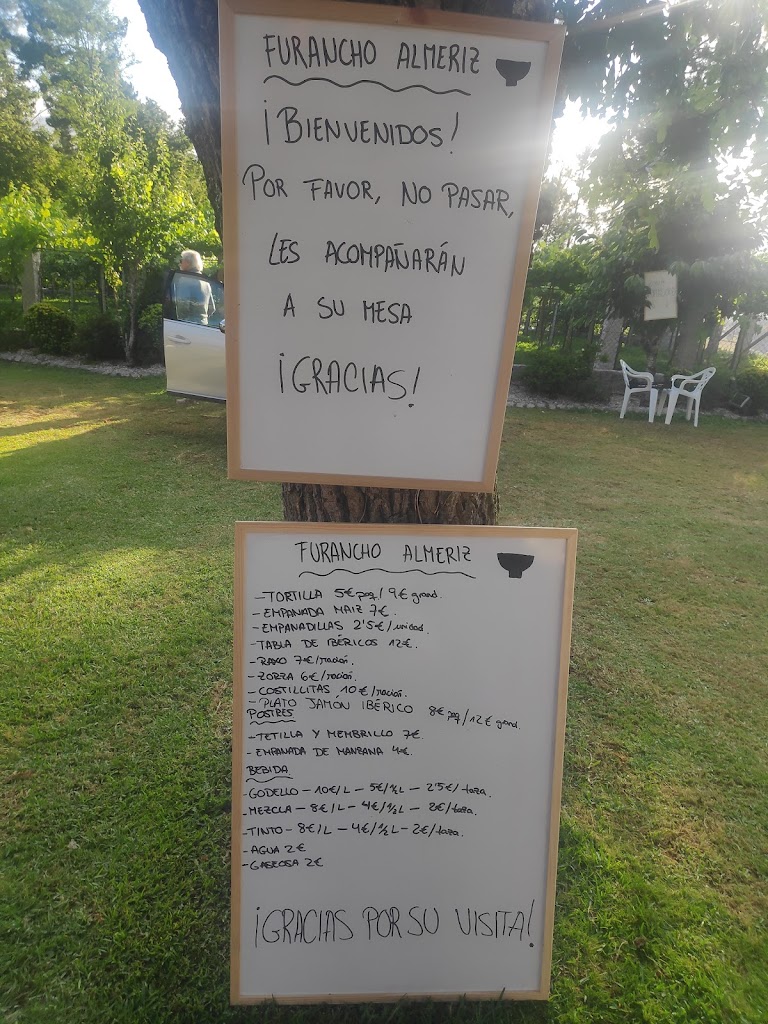 FURANCHO ALMERIZ
¡BIENVENIDOS!
POR FAVOR, NO PASAR,
LES ACOMPAÑARÁN
A SU MESA
¡GRACIAS!
FURANCHO ALMERIZ
- TORTILLA 5€ peq/9€ grand.
- EMPANADA MAIZ 7€.
- EMPANADILLAS 2'5€/unidad.
- TABLA DE IBÉRICOS 12€.
- RAXO 7€/ración.
- ZORZA 6€/ración.
- COSTILLITAS 10€/ración.
- PLATO JAMÓN IBÉRICO 8€ peq/12€ grand.
POSTRES
- TETILLA Y MEMBRILLO 7€.
- EMPANADA DE MANZANA 4€.
BEBIDA
- GODELLO - 10€/L - 5€/½L - 2'5€/taza.
- MEZCLA - 8€/L - 4€/½L - 2€/taza.
- TINTO - 8€/L - 4€/½L - 2€/taza.
- AGUA 2€
- GASEOSA 2€
¡GRACIAS POR SU VISITA!